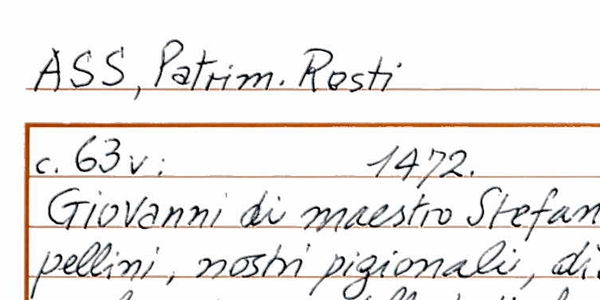 ASS, Patrim. Resti
c. 63v: 1472.
Giovanni di maestro Stefan
pellini, nostri pigionali, di